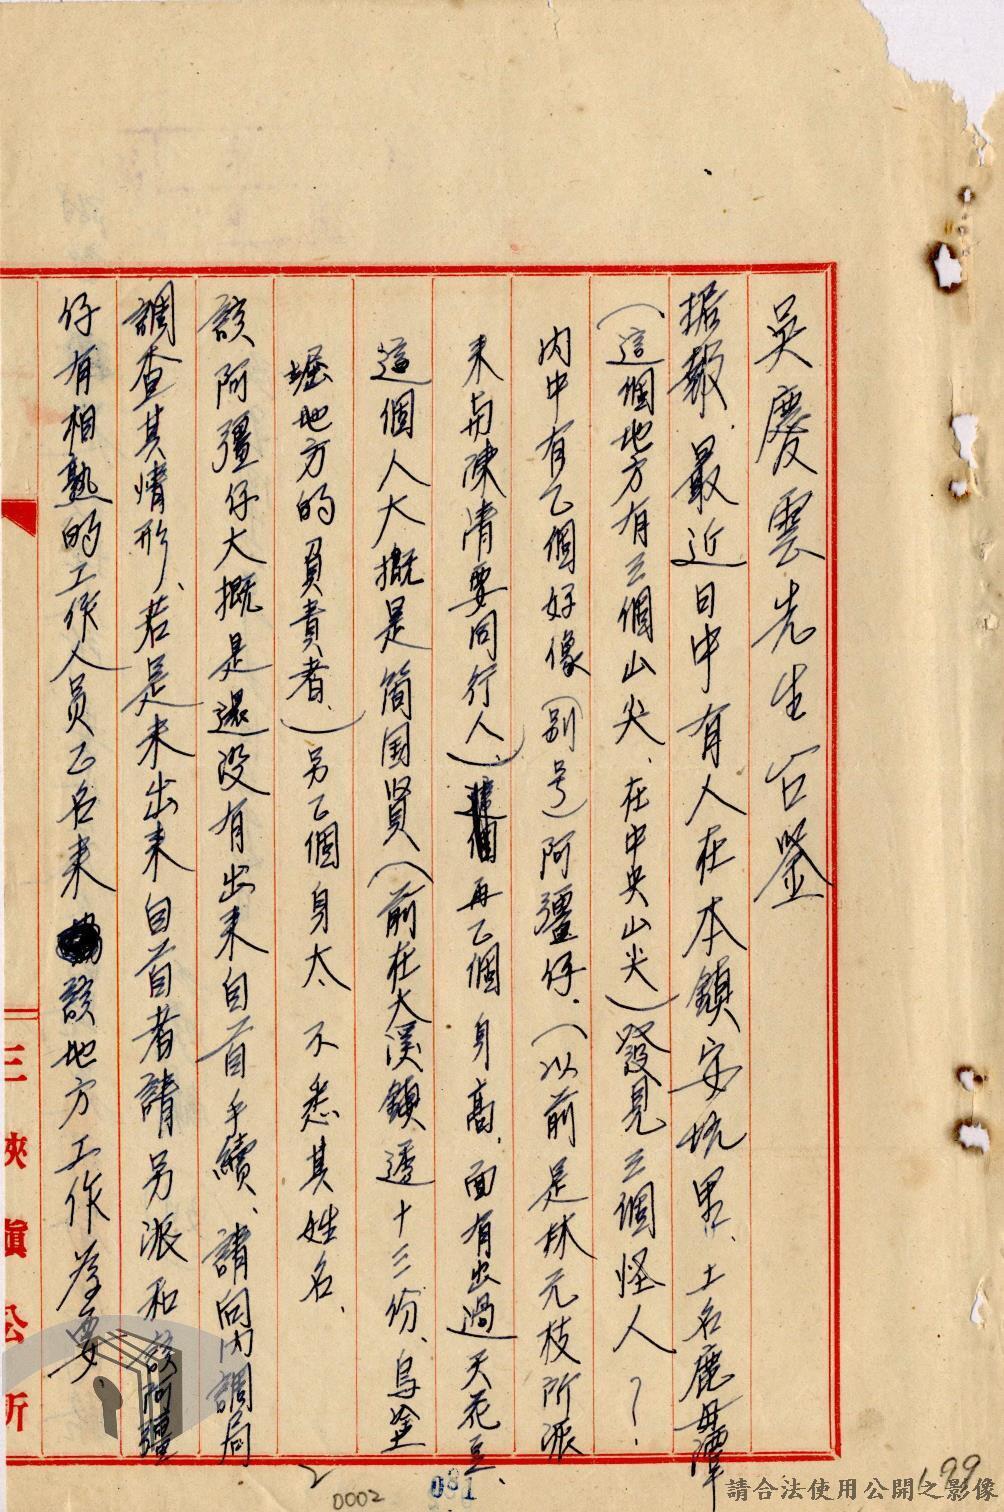 吳慶雲先生台鑒
据報、最近日中有人在本鎮安坑里、土名鹿母潭
(這個地方有三個山尖、在中央山尖)發見三個怪人?
內中有乙個好像(別号)阿彊仔、(以前是林元枝所派
来与陳清要同行人、)再乙個身高、面有出過天花豆、
這個人大概是簡国賢(前在大溪鎮透十三份、烏塗
堀地方的負責者、)另乙個身大、不悉其姓名、
該阿彊仔大概是還没有出来自首手續、請向内調局
調查其情形、若是未出来自首者請另派和該阿彊
仔有相熟的工作人員乙名来該地方工作為要
三峽鎮公所
2
0002
081
199
請合法使用公開之影像